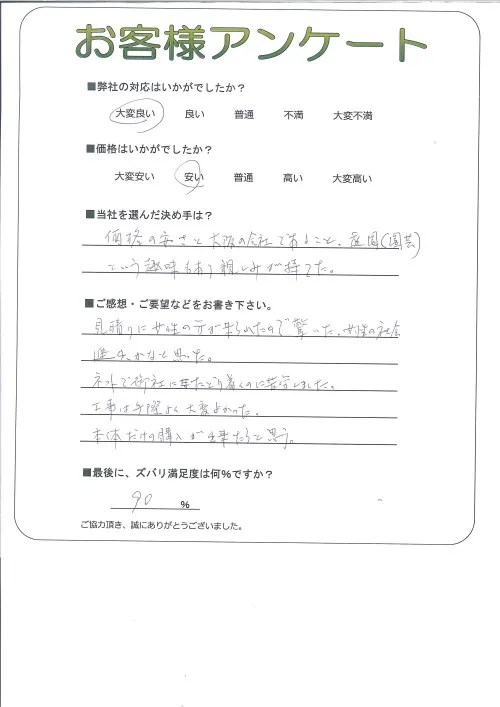 お客様アンケート
■弊社の対応はいかがでしたか？
大変良い 良い 普通 不満 大変不満
■価格はいかがでしたか？
大変安い 安い 普通 高い 大変高い
■当社を選んだ決め手は？
価格の安さと大阪の会社であること、庭園(園芸)
という趣味もあり親しみが持てた。
■ご感想・ご要望などをお書き下さい。
見積りに女性の方が来られたので驚いた。女性の社会
進出かなと思った。
ネットで御社にたどり着くのに苦労しました。
工事は手際よく大変よかった。
本体だけの購入が出来たらと思う。
■最後に、ズバリ満足度は何％ですか？
90 ％
ご協力頂き、誠にありがとうございました。